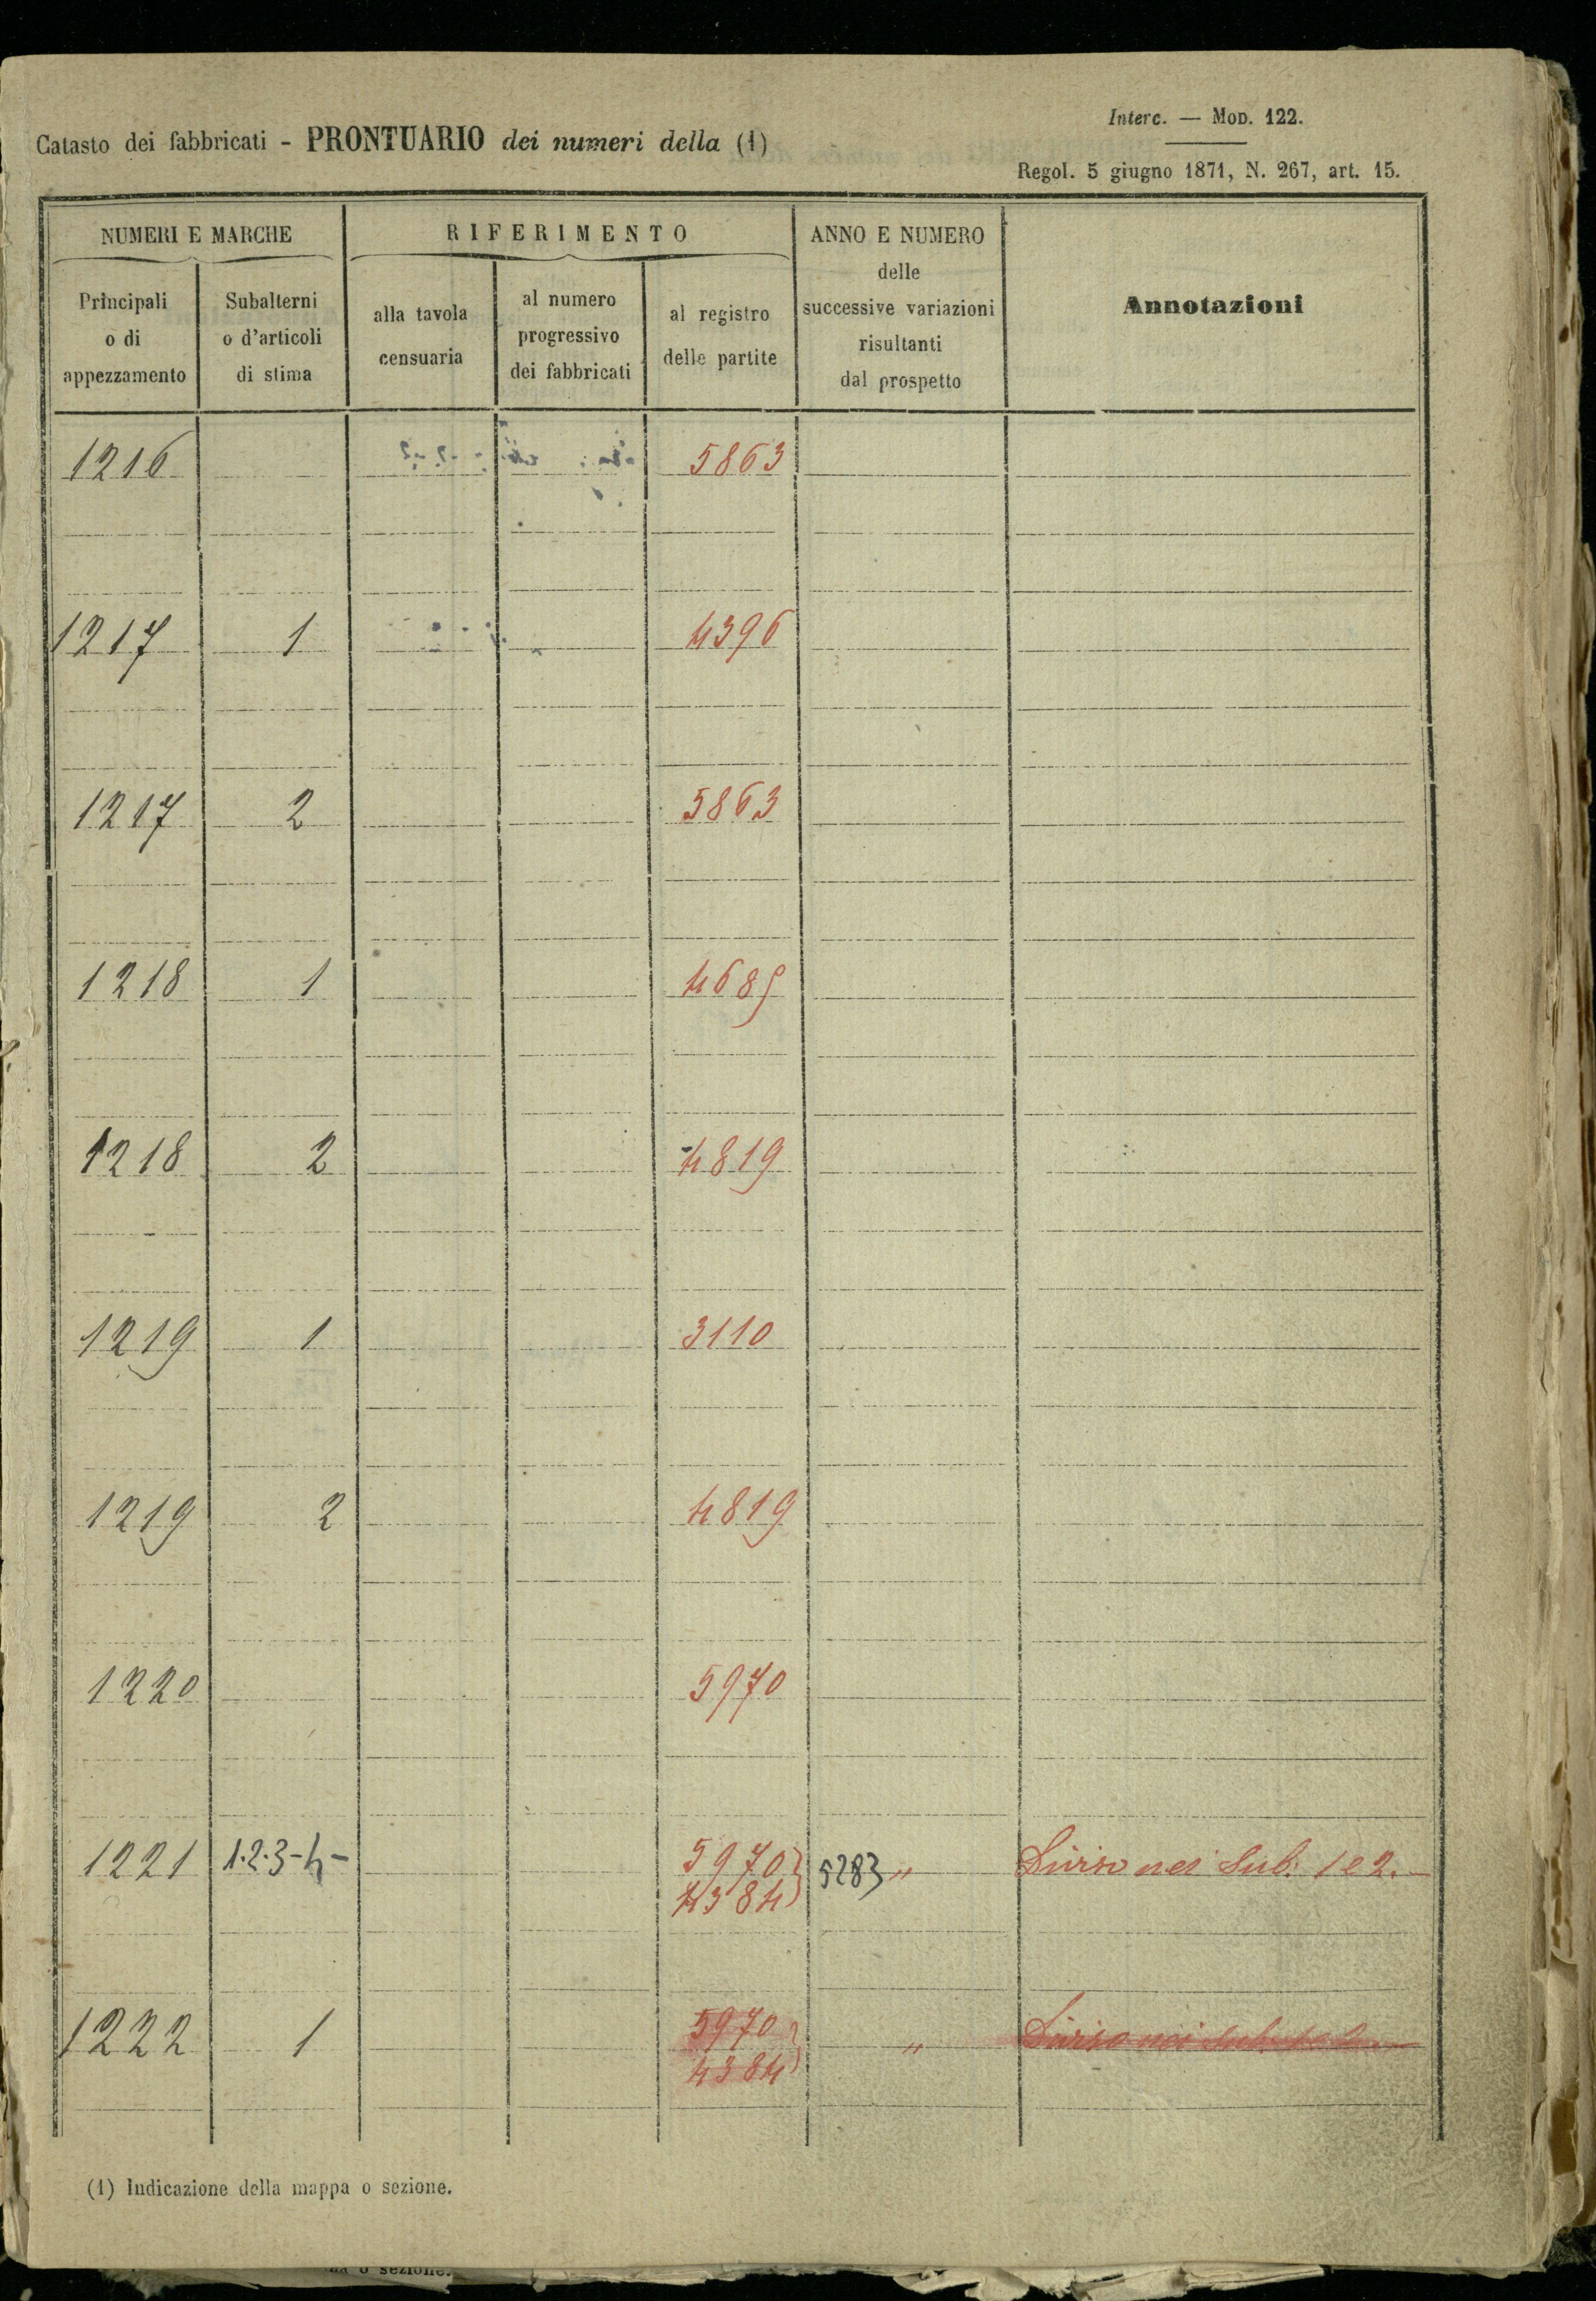 Interc. — MOD. 122.
Catasto dei fabbricati - PRONTUARIO dei numeri della (1)
Regol. 5 giugno 1871, N. 267, art. 15.
NUMERI E MARCHE
RIFERIMENTO
ANNO E NUMERO
delle
successive variazioni
risultanti
dal prospetto
Annotazioni
Principali
o di
appezzamento
Subalterni
o d'articoli
di stima
alla tavola
censuaria
al numero
progressivo
dei fabbricati
al registro
delle partite
1216 5863
1217 1 4396
1217 2 5863
1218 1 4689
1218 2 4819
1219 1 3110
1219 2 4819
1220 5970
1221 1.2.3-4- 5970 5283 " Diviso nei Sub. 1 e 2. -
4384
1222 1 5970 " Diviso nei Sub. 1 e 2. -
4384
(1) Indicazione della mappa o sezione.
o sezione.